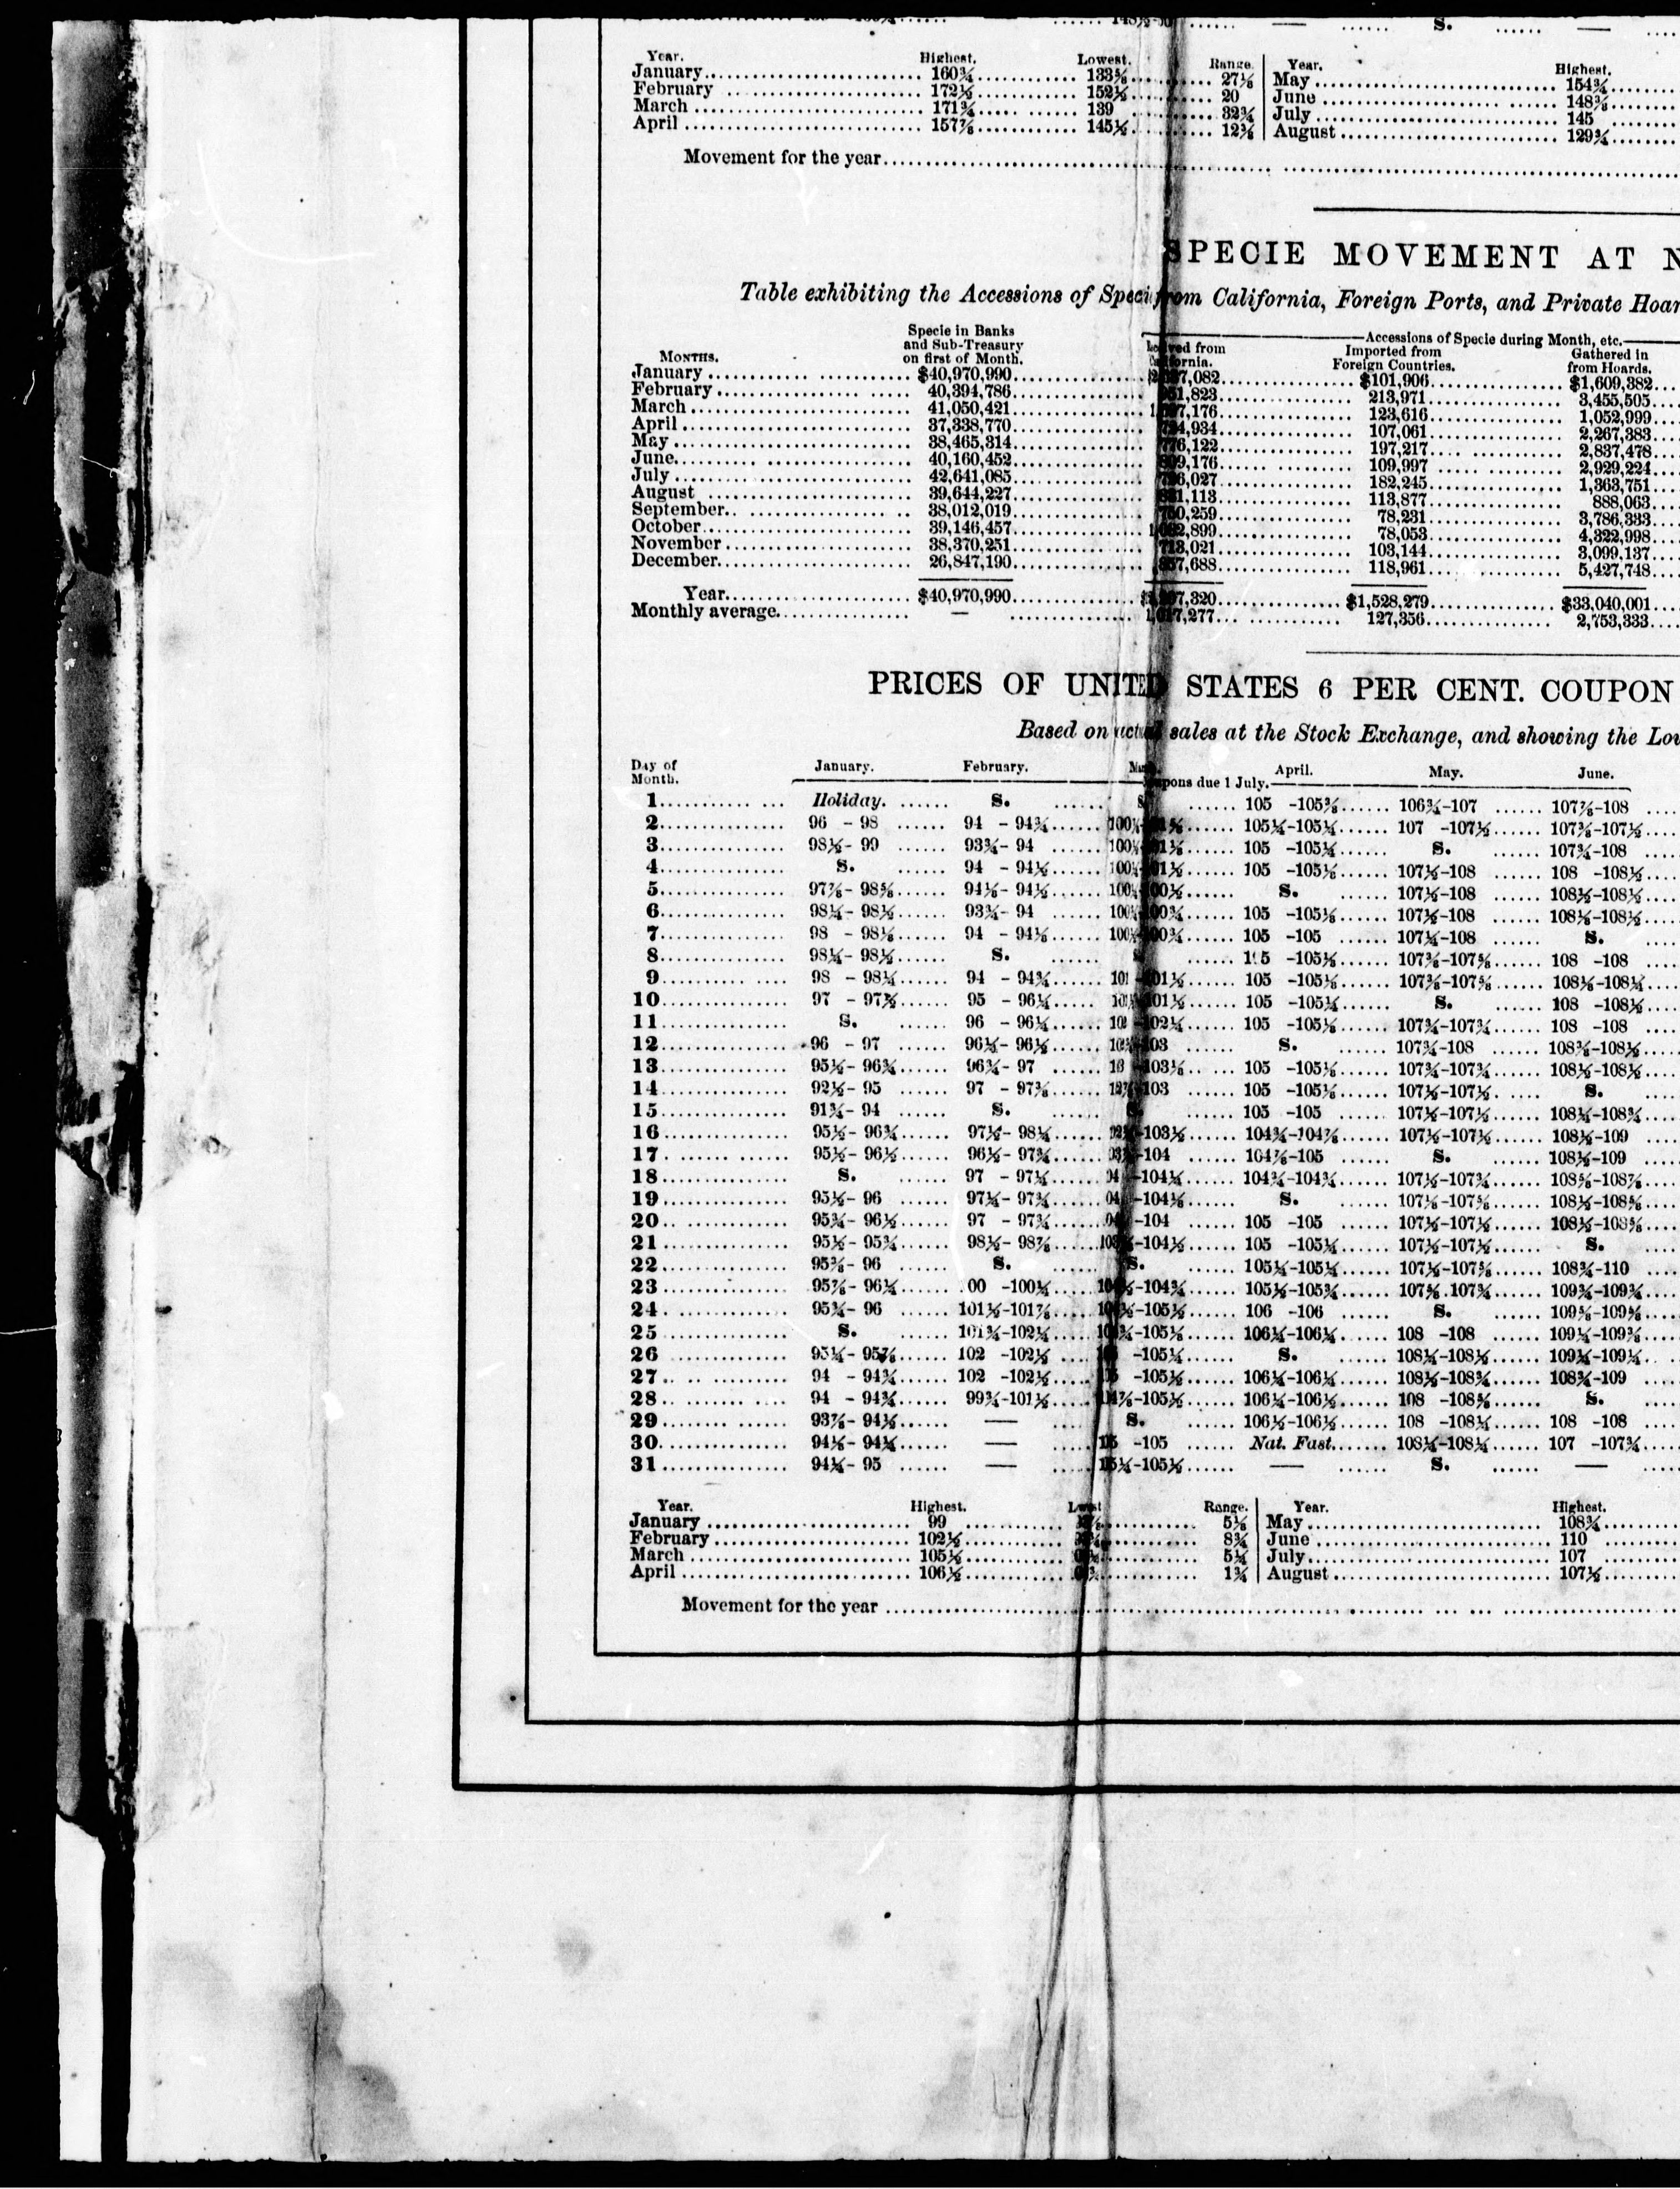 148½-50 S.
Year. Highest. Lowest. Range. Year. Highest.
January 160¾ 133⅝ 27⅛ May 154¾
February 172½ 152½ 20 June 148⅜
March 171¾ 139 32¾ July 145
April 157⅞ 145½ 12⅜ August 129¾
Movement for the year
SPECIE MOVEMENT AT N
Table exhibiting the Accessions of Specie from California, Foreign Ports, and Private Hoar
Accessions of Specie during Month, etc.
MONTHS. Specie in Banks and Sub-Treasury on first of Month. Imported from Foreign Countries. Gathered in from Hoards.
January $40,970,990 7,082 $101,906 $1,609,382
February 40,394,786 1,823 213,971 3,455,505
March 41,050,421 7,176 123,616 1,052,999
April 37,338,770 4,934 107,061 2,267,383
May 38,465,314 6,122 197,217 2,837,478
June 40,160,452 9,176 109,997 2,929,224
July 42,641,085 6,027 182,245 1,363,751
August 39,644,227 1,113 113,877 888,063
September 38,012,019 0,259 78,231 3,786,333
October 39,146,457 2,899 78,053 4,322,998
November 38,370,251 3,021 103,144 3,099,137
December 26,847,190 7,688 118,961 5,427,748
Year $40,970,990 7,320 $1,528,279 $33,040,001
Monthly average — 7,277 127,356 2,753,333
PRICES OF UNITED STATES 6 PER CENT. COUPON
Based on actual sales at the Stock Exchange, and showing the Lo
Day of Month. January. February. April. May. June.
coupons due 1 July.
1 Holiday. S. S. 105 -105⅜ 106¾-107 107⅞-108
2 96 - 98 94 - 94¾ 105¼-105¼ 107 -107½ 107⅜-107½
3 98½- 99 93¾- 94 105 -105¼ S. 107¾-108
4 S. 94 - 94½ 105 -105½ 107½-108 108 -108½
5 97⅞- 98⅝ 94⅛- 94½ S. 107½-108 108½-108½
6 98¼- 98½ 93¾- 94 105 -105⅛ 107½-108 108⅛-108½
7 98 - 98⅛ 94 - 94⅛ 105 -105 107¼-108 S.
8 98¼- 98½ S. 105 -105½ 107⅜-107⅝ 108 -108
9 98 - 98¼ 94 - 94¾ 105 -105½ 107⅜-107⅝ 108½-108¼
10 97 - 97⅝ 95 - 96¼ 105 -105¼ S. 108 -108½
11 S. 96 - 96¼ 105 -105⅛ 107¾-107¾ 108 -108
12 96 - 97 96½- 96½ 103 S. 107¾-108 108⅜-108½
13 95½- 96¾ 96¾- 97 103⅛ 105 -105½ 107¾-107¾ 108½-108½
14 92½- 95 97 - 97⅜ 103 105 -105⅛ 107½-107½ S.
15 91¾- 94 S. 105 -105 107½-107½ 108¼-108¾
16 95½- 96¾ 97½- 98¼ -103½ 104¾-104⅞ 107½-107½ 108½-109
17 95½- 96½ 96½- 97¾ -104 104⅞-105 S. 108½-109
18 S. 97 - 97¼ -104¼ 104¾-104¾ 107½-107¾ 108⅝-108⅞
19 95½- 96 97¼- 97¾ -104⅛ S. 107½-107⅝ 108½-108⅝
20 95¾- 96½ 97 - 97¾ -104 105 -105 107½-107½ 108½-108⅜
21 95½- 95¾ 98½- 98⅞ -104½ 105 -105¼ 107½-107½ S.
22 95⅜- 96 S. S. 105¼-105¼ 107½-107⅝ 108¾-110
23 95⅞- 96¼ 00 -100¼ -104¾ 105½-105¾ 107⅝ 107¾ 109¾-109¾
24 95¾- 96 101½-101⅞ -105½ 106 -106 S. 109⅝-109⅝
25 S. 101¾-102¼ -105⅛ 106¼-106¼ 108 -108 109¼-109⅜
26 95¼- 95⅞ 102 -102½ -105¼ S. 108¼-108½ 109¼-109¼
27 94 - 94¾ 102 -102½ -105½ 106¼-106¼ 108½-108¾ 108¾-109
28 94 - 94¾ 99¾-101½ -105½ 106¼-106½ 108 -108⅝ S.
29 93⅞- 94½ — S. 106½-106½ 108 -108¼ 108 -108
30 94½- 94¼ — -105 Nat. Fast. 108¼-108¼ 107 -107¾
31 94¼- 95 — -105½ — S. —
Year. Highest. Range. Year. Highest.
January 99 5⅛ May 108¾
February 102½ 8¾ June 110
March 105½ 5¼ July 107
April 106½ 1¾ August 107½
Movement for the year